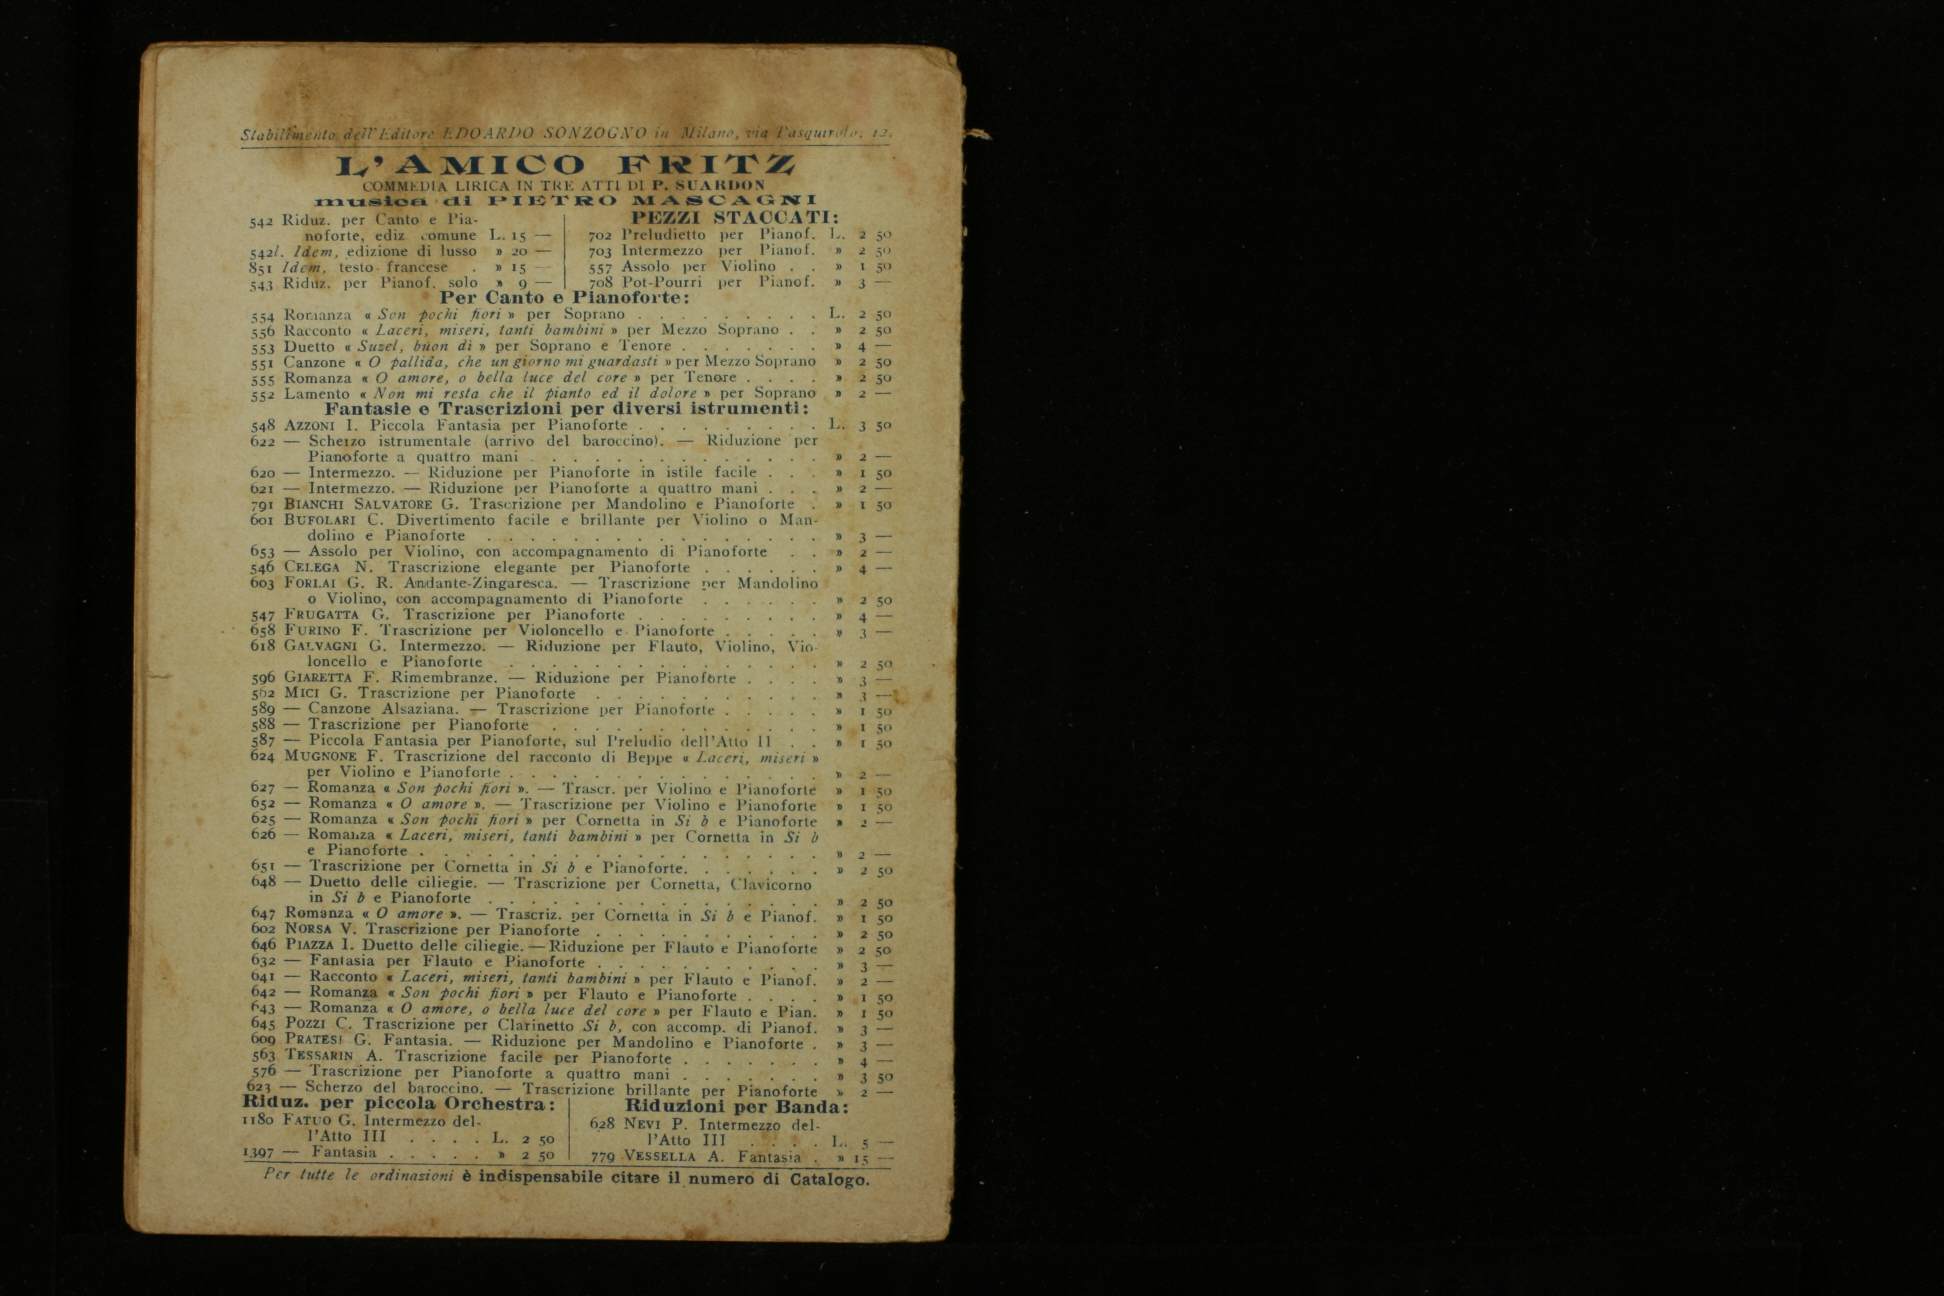 Stabilimento dell'Editore EDOARDO SONZOGNO in Milano, via Pasquirolo, 12.
L'AMICO FRITZ
COMMEDIA LIRICA IN TRE ATTI DI P. SUARDON
musica di PIETRO MASCAGNI
542 Riduz. per Canto e Pia-
noforte, ediz comune L. 15 —
542l. Idem, edizione di lusso » 20 —
851 Idem, testo francese . » 15 —
543 Riduz. per Pianof. solo » 9 —
PEZZI STACCATI:
702 Preludietto per Pianof. L. 2 50
703 Intermezzo per Pianof. » 2 50
557 Assolo per Violino . . » 1 50
708 Pot-Pourri per Pianof. » 3 —
Per Canto e Pianoforte:
554 Romanza « Son pochi fiori » per Soprano . . . . . . . . . L. 2 50
556 Racconto « Laceri, miseri, tanti bambini » per Mezzo Soprano . . » 2 50
553 Duetto « Suzel, buon dì » per Soprano e Tenore . . . . . . . » 4 —
551 Canzone « O pallida, che un giorno mi guardasti » per Mezzo Soprano » 2 50
555 Romanza « O amore, o bella luce del core » per Tenore . . . . » 2 50
552 Lamento « Non mi resta che il pianto ed il dolore » per Soprano » 2 —
Fantasie e Trascrizioni per diversi istrumenti:
548 AZZONI I. Piccola Fantasia per Pianoforte . . . . . . . . . L. 3 50
622 — Scherzo istrumentale (arrivo del baroccino). — Riduzione per
Pianoforte a quattro mani . . . . . . . . . . . . . . » 2 —
620 — Intermezzo. — Riduzione per Pianoforte in istile facile . . . » 1 50
621 — Intermezzo. — Riduzione per Pianoforte a quattro mani . . . » 2 —
791 BIANCHI SALVATORE G. Trascrizione per Mandolino e Pianoforte . » 1 50
601 BUFOLARI C. Divertimento facile e brillante per Violino o Man-
dolino e Pianoforte . . . . . . . . . . . . . . . . » 3 —
653 — Assolo per Violino, con accompagnamento di Pianoforte . . » 2 —
546 CELEGA N. Trascrizione elegante per Pianoforte . . . . . . » 4 —
603 FORLAI G. R. Andante-Zingaresca. — Trascrizione per Mandolino
o Violino, con accompagnamento di Pianoforte . . . . . . » 2 50
547 FRUGATTA G. Trascrizione per Pianoforte . . . . . . . . . » 4 —
658 FURINO F. Trascrizione per Violoncello e Pianoforte . . . . . » 3 —
618 GALVAGNI G. Intermezzo. — Riduzione per Flauto, Violino, Vio-
loncello e Pianoforte . . . . . . . . . . . . . . . » 2 50
596 GIARETTA F. Rimembranze. — Riduzione per Pianoforte . . . . » 3 —
562 MICI G. Trascrizione per Pianoforte . . . . . . . . . . . » 3 —
589 — Canzone Alsaziana. — Trascrizione per Pianoforte . . . . . » 1 50
588 — Trascrizione per Pianoforte . . . . . . . . . . . . . » 1 50
587 — Piccola Fantasia per Pianoforte, sul Preludio dell'Atto II . . » 1 50
624 MUGNONE F. Trascrizione del racconto di Beppe « Laceri, miseri »
per Violino e Pianoforte . . . . . . . . . . . . . . » 2 —
627 — Romanza « Son pochi fiori ». — Trascr. per Violino e Pianoforte » 1 50
652 — Romanza « O amore ». — Trascrizione per Violino e Pianoforte » 1 50
625 — Romanza « Son pochi fiori » per Cornetta in Si b e Pianoforte » 2 —
626 — Romanza « Laceri, miseri, tanti bambini » per Cornetta in Si b
e Pianoforte . . . . . . . . . . . . . . . . . . . » 2 —
651 — Trascrizione per Cornetta in Si b e Pianoforte. . . . . . . » 2 50
648 — Duetto delle ciliegie. — Trascrizione per Cornetta, Clavicorno
in Si b e Pianoforte . . . . . . . . . . . . . . . . » 2 50
647 Romanza « O amore ». — Trascriz. per Cornetta in Si b e Pianof. » 1 50
602 NORSA V. Trascrizione per Pianoforte . . . . . . . . . . . » 2 50
646 PIAZZA I. Duetto delle ciliegie. — Riduzione per Flauto e Pianoforte » 2 50
632 — Fantasia per Flauto e Pianoforte . . . . . . . . . . . » 3 —
641 — Racconto « Laceri, miseri, tanti bambini » per Flauto e Pianof. » 2 —
642 — Romanza « Son pochi fiori » per Flauto e Pianoforte . . . . » 1 50
643 — Romanza « O amore, o bella luce del core » per Flauto e Pian. » 1 50
645 POZZI C. Trascrizione per Clarinetto Si b, con accomp. di Pianof. » 3 —
609 PRATESI G. Fantasia. — Riduzione per Mandolino e Pianoforte . » 3 —
563 TESSARIN A. Trascrizione facile per Pianoforte . . . . . . . » 4 —
576 — Trascrizione per Pianoforte a quattro mani . . . . . . . » 3 50
623 — Scherzo del baroccino. — Trascrizione brillante per Pianoforte » 2 —
Riduz. per piccola Orchestra:
1180 FATUO G. Intermezzo del-
l'Atto III . . . . L. 2 50
1397 — Fantasia . . . . . » 2 50
Riduzioni per Banda:
628 NEVI P. Intermezzo del-
l'Atto III . . . . L. 5 —
779 VESSELLA A. Fantasia . » 15 —
Per tutte le ordinazioni è indispensabile citare il numero di Catalogo.